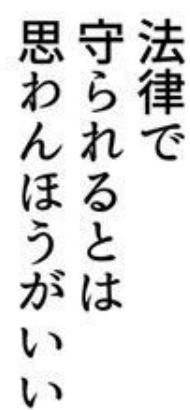 法律で
守られるとは
思わんほうがいい